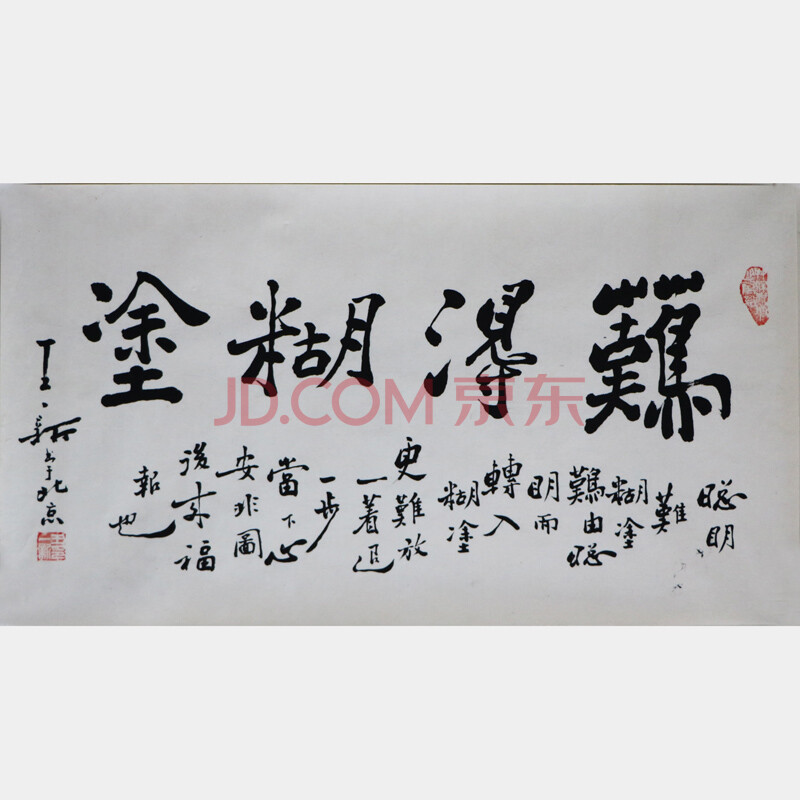 難得糊塗
聰明
難
糊塗
難由聰
明而
轉入
糊塗
更難放
一着退
一步
當下心
安非圖
後来福
報也
书于北京
JD.COM 京东